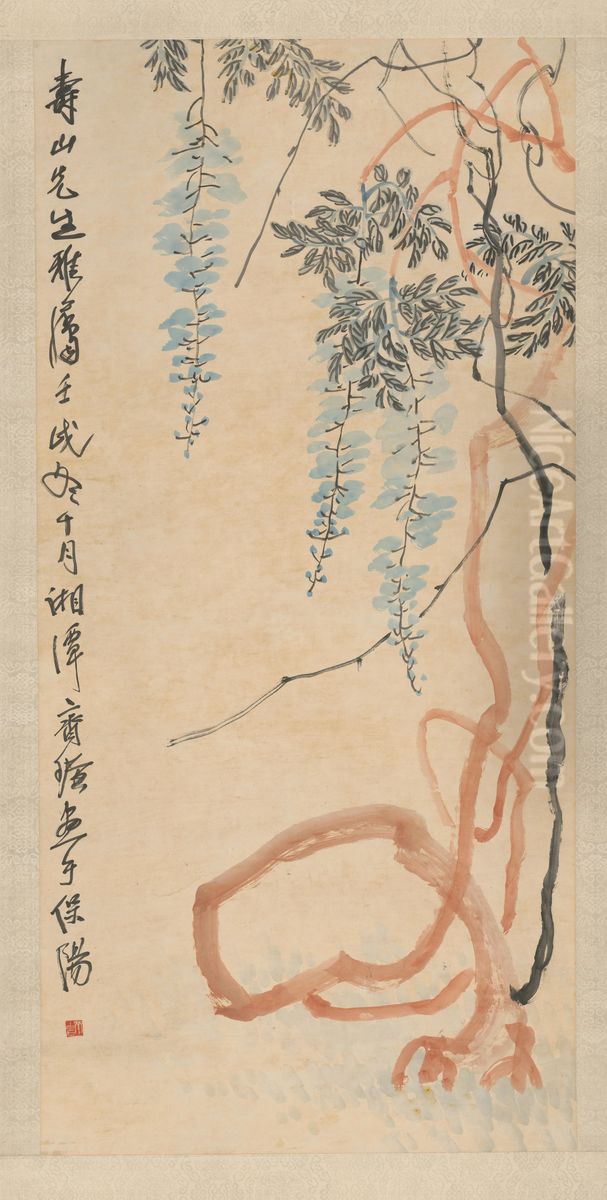 壽山先生雅屬壬戌冬十月湘潭齊璜畫于保陽
NiceArtGallery.com